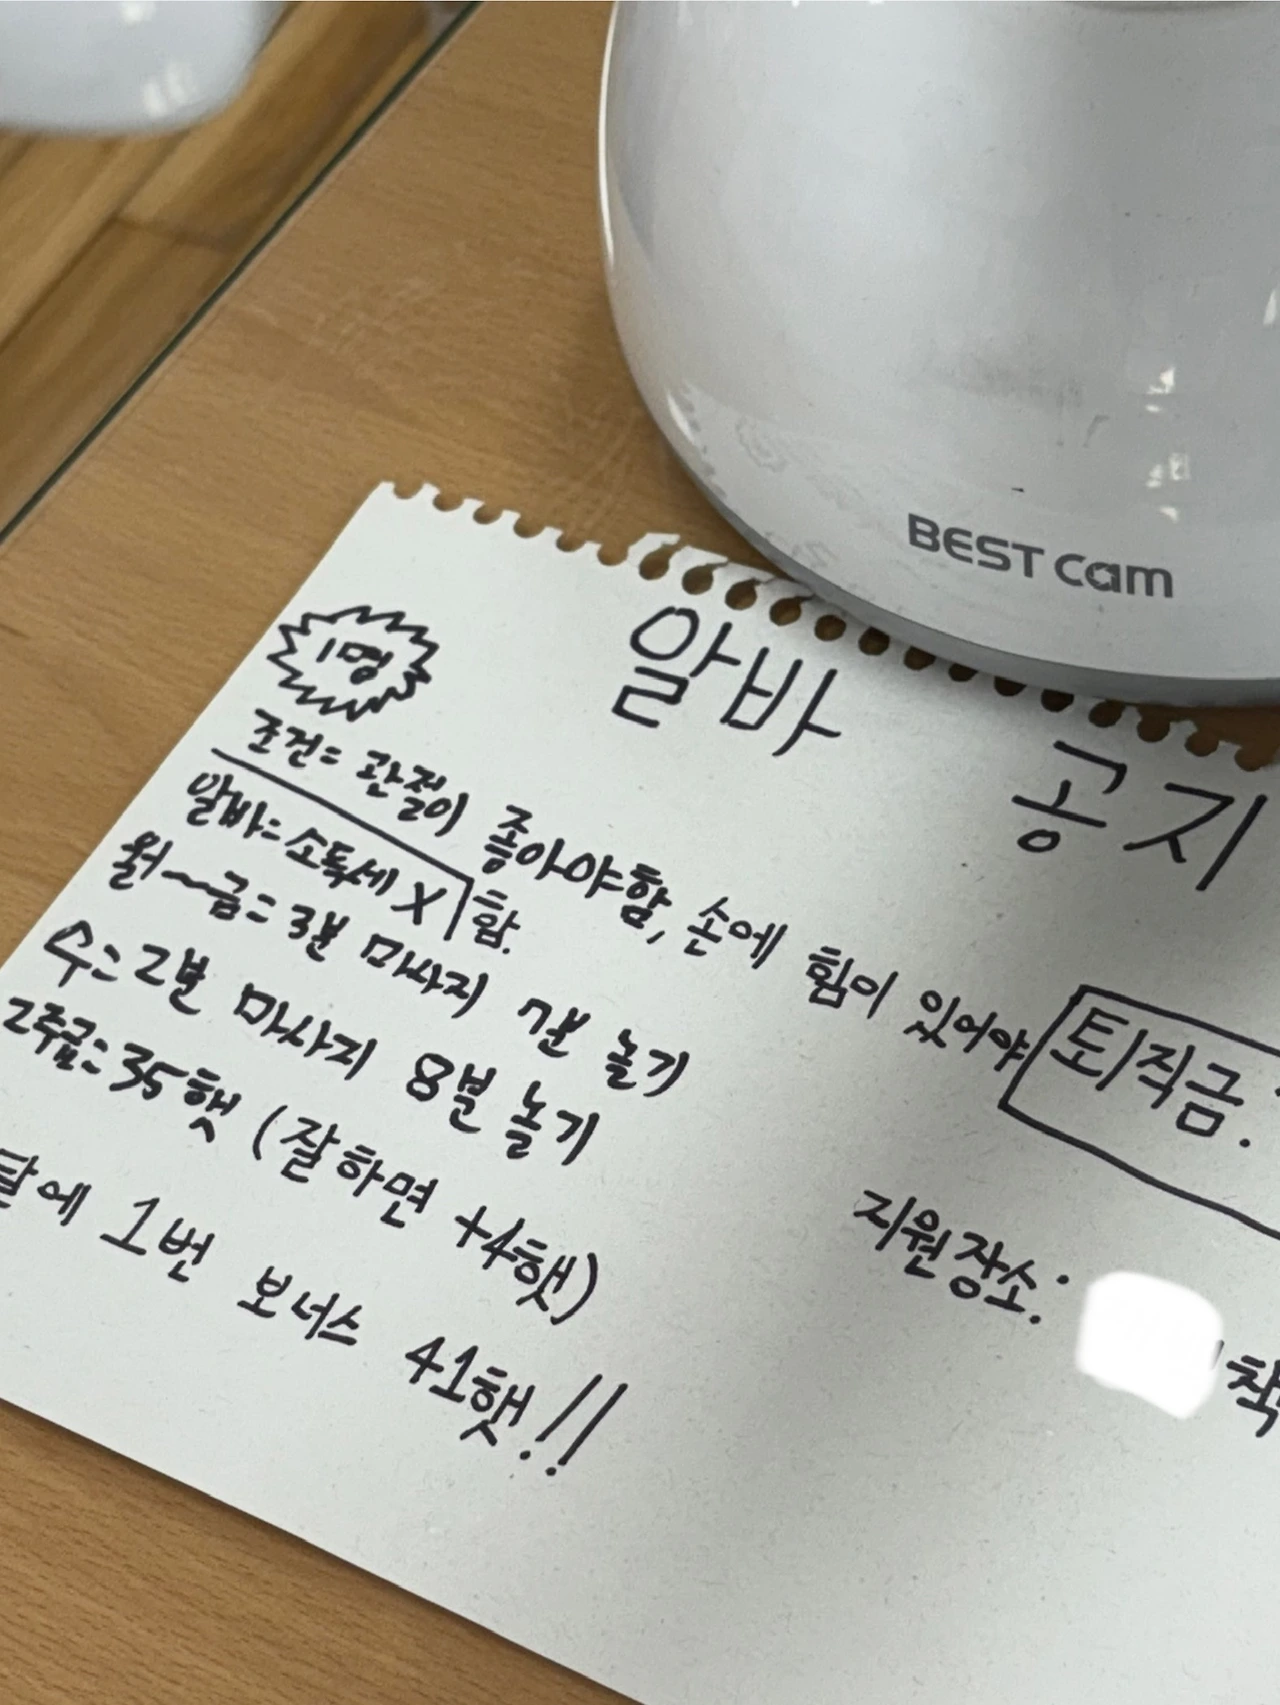 BEST Cam
알바 공지
1명
조건= 관절이 좋아야함, 손에 힘이 있어야
함.
알바= 소득세 X
월~금= 3분 마사지 7분 놀기
수= 2분 마사지 8분 놀기
2주급= 35햇 (잘하면 +4햇)
달에 1번 보너스 41햇!!
퇴직금.
지원장소: 책